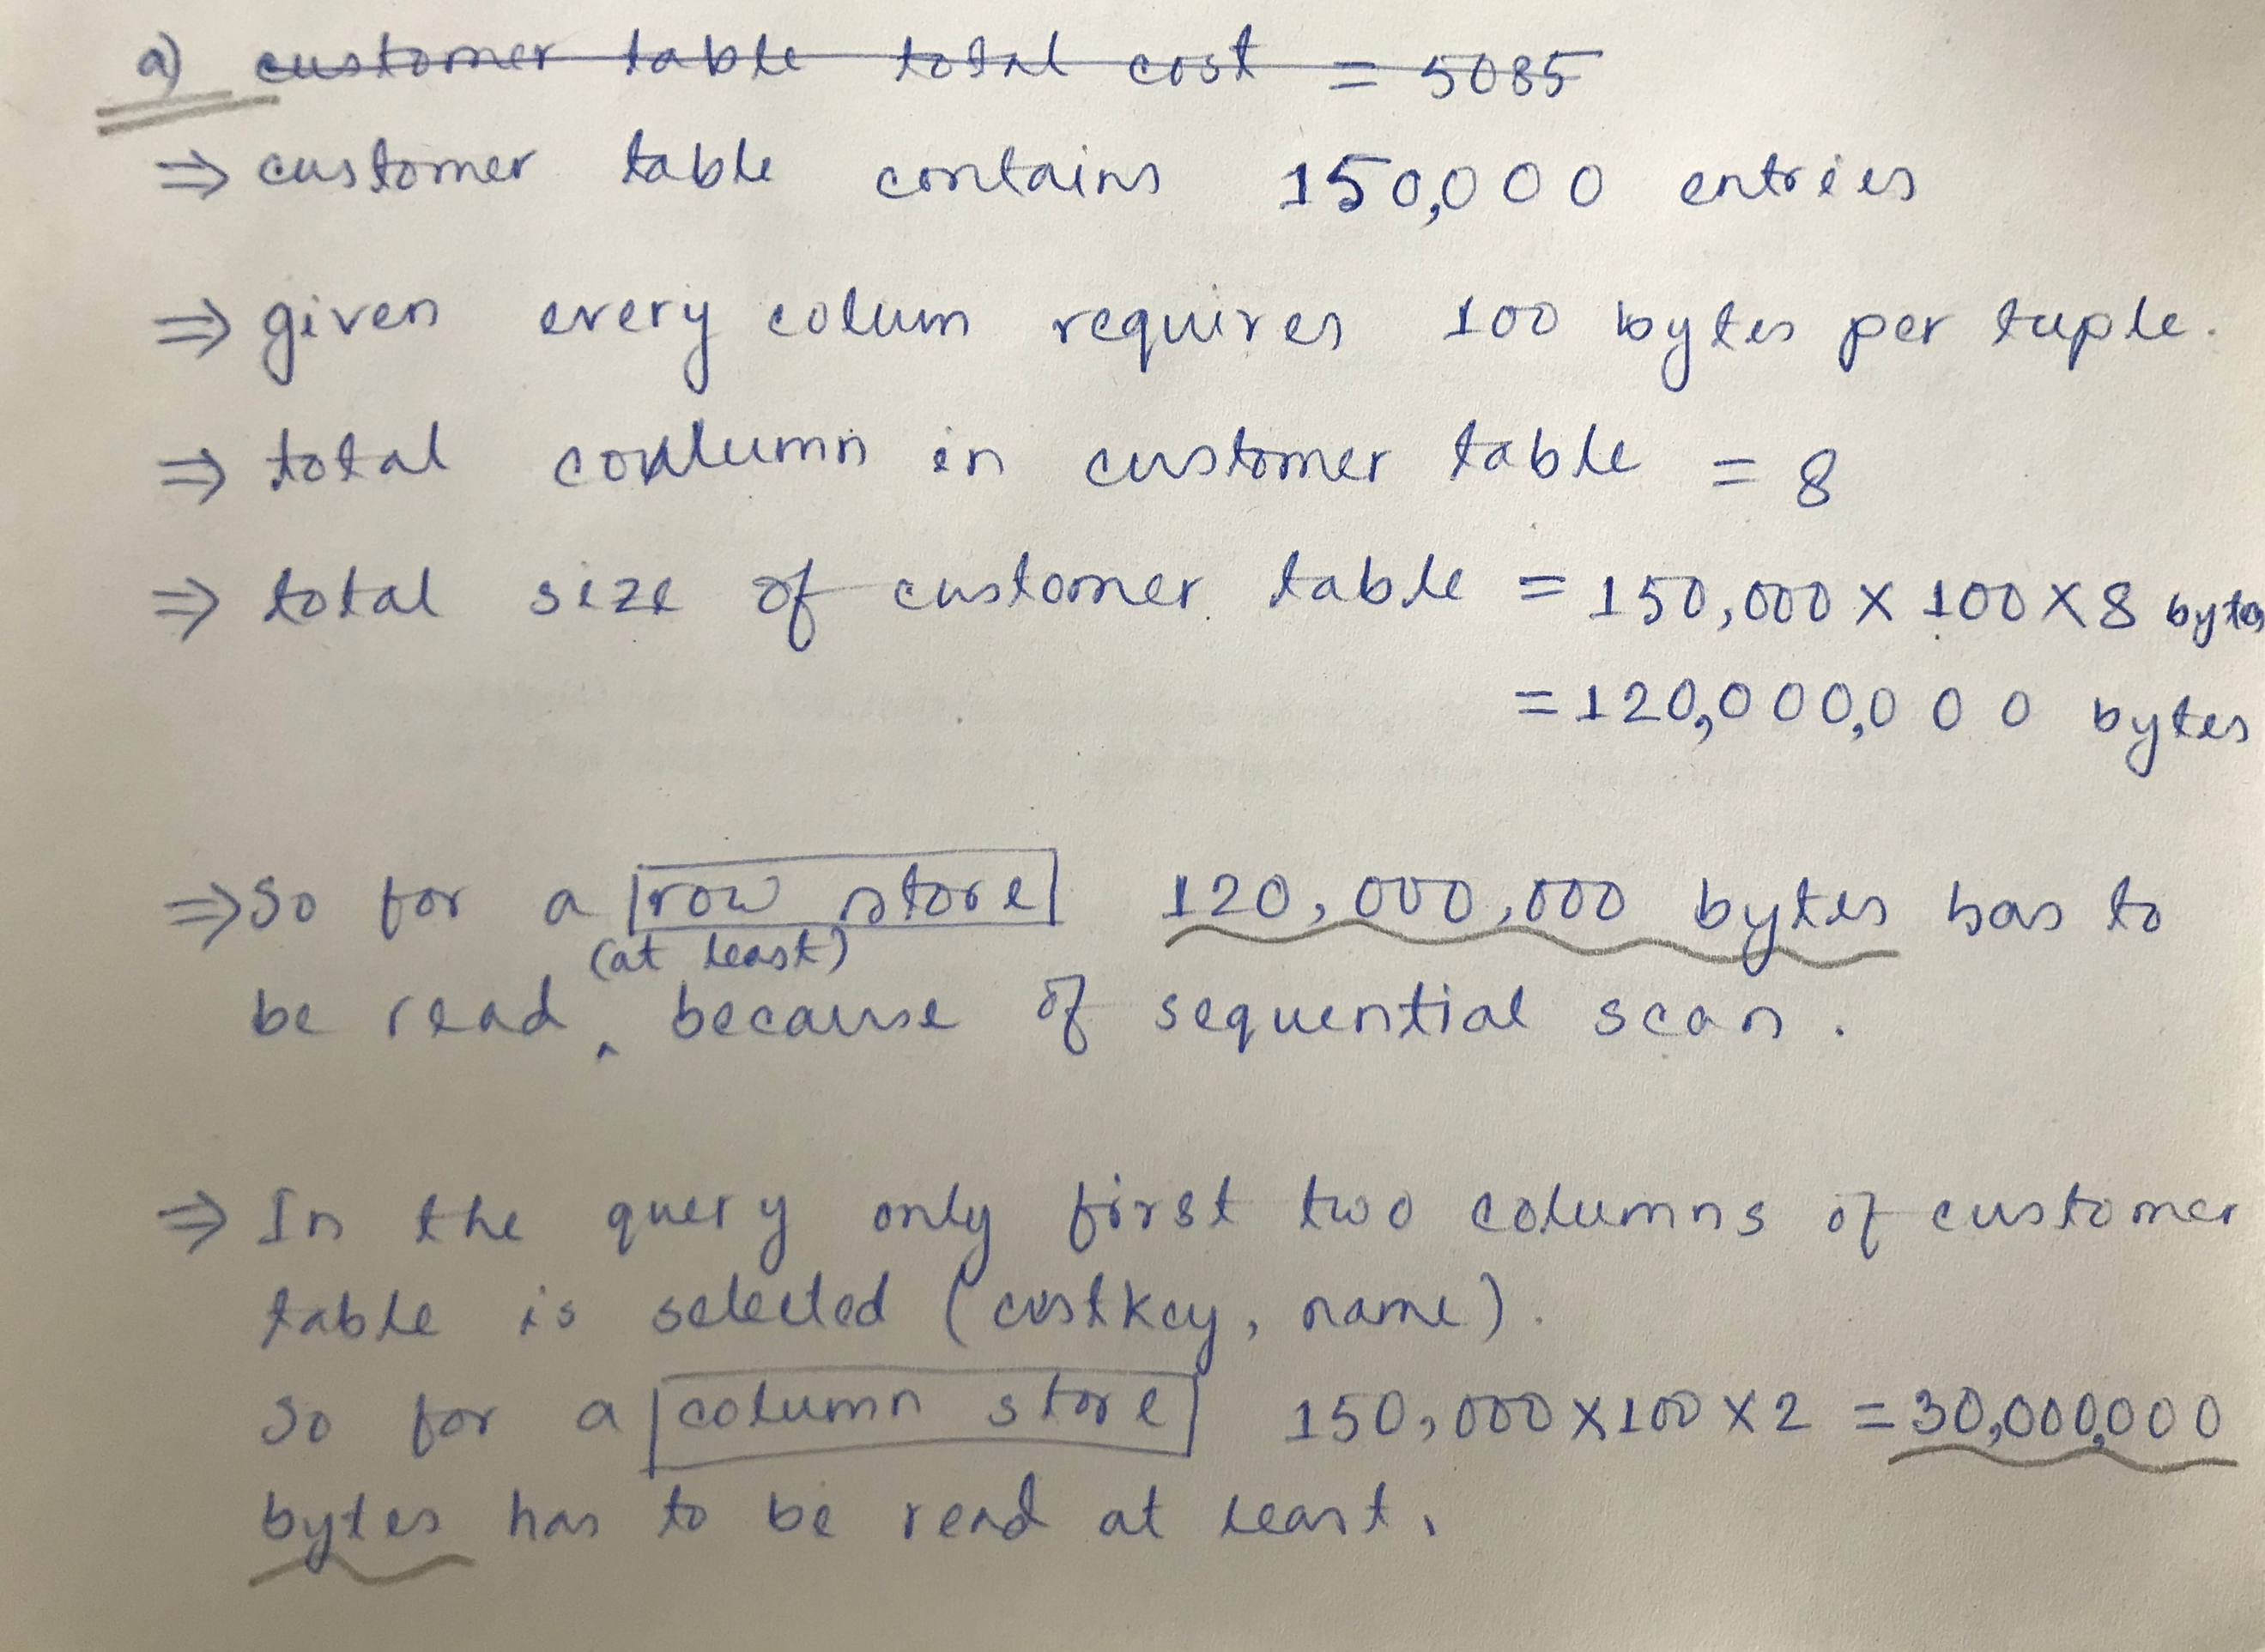 a) customer table total cost = 5085
⇒ customer table contains 150,000 entries
⇒ given every colum requires 100 bytes per tuple.
⇒ total conlumn in customer table = 8
⇒ total size of customer table = 150,000 X 100 X 8 bytes
= 120,000,000 bytes
⇒ So for a row store 120,000,000 bytes has to
(at least)
be read ‸ because of sequential scan.
⇒ In the query only first two columns of customer
table is selected (custkey, name).
So for a column store 150,000 X 100 X 2 = 30,000,000
bytes has to be read at least.